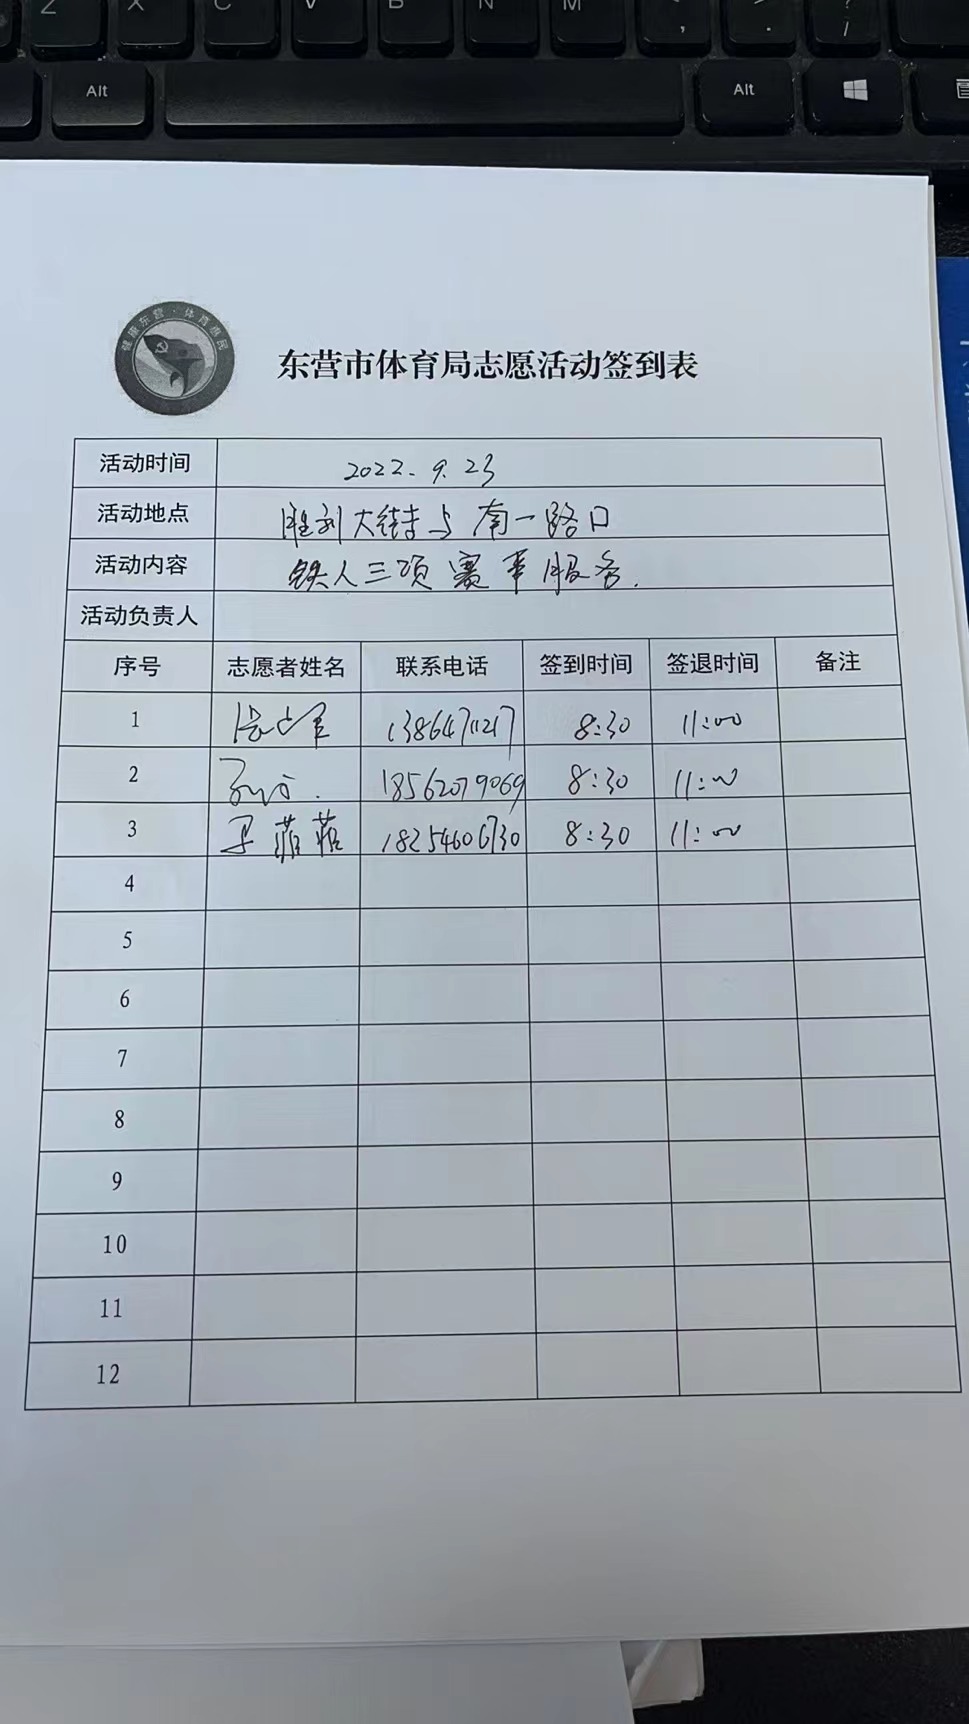 Z X C V B N M < , > . ? /
Alt Alt
健康东营·体育惠民
东营市体育局志愿活动签到表
活动时间 2022.9.23
活动地点 胜利大街与南一路口
活动内容 铁人三项赛事服务.
活动负责人
序号 志愿者姓名 联系电话 签到时间 签退时间 备注
1 13864711217 8:30 11:00
2 18562079069 8:30 11:00
3 菲菲 18254606730 8:30 11:00
4
5
6
7
8
9
10
11
12